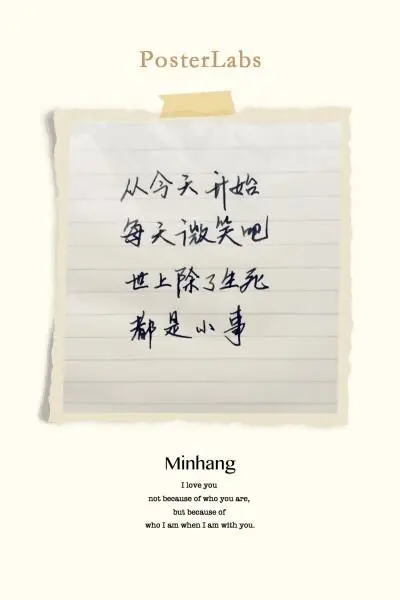 PosterLabs
从今天开始
每天微笑吧
世上除了生死
都是小事
Minhang
I love you
not because of who you are,
but because of
who I am when I am with you.